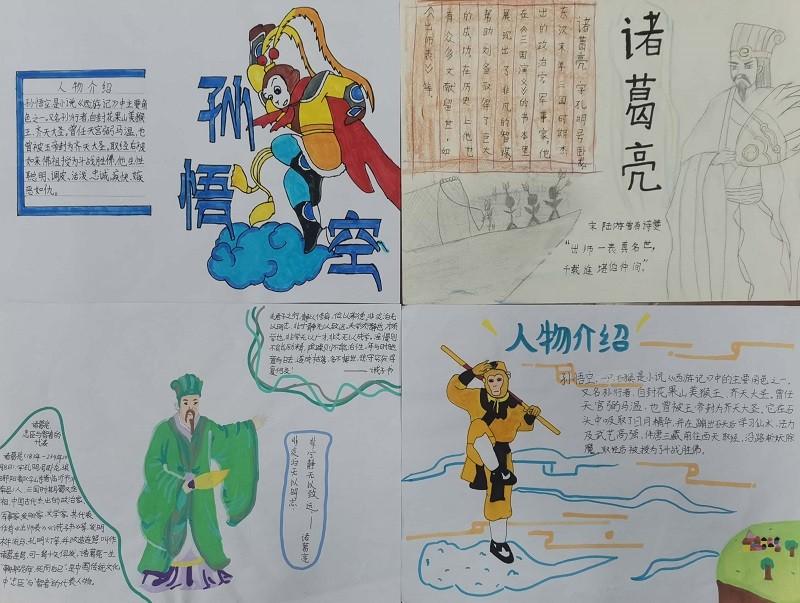 人物介绍
孙悟空是小说《西游记》中主要角
色之一。又名孙行者,自封花果山美猴
王、齐天大圣。曾任天宫弼马温,也
曾被玉帝封为齐天大圣。取经后被
如来佛祖授为斗战胜佛。他生性
聪明、调皮、活泼、忠诚、疾快、嫉
恶如仇。
孙
悟
空
诸葛亮
诸葛亮,字孔明,号卧龙
东汉末年三国时期杰
出的政治家、军事家。他
在《三国演义》的书本里
展现出了非凡的智谋
帮助刘备取得了巨大
的成功。在历史上他也
有众多文献留世,如
《出师表》等。
宋 陆游曾有诗赞
“出师一表真名世,
千载谁堪伯仲间。”
夫君子之行,静以修身,俭以养德,非淡泊无
以明志,非宁静无以致远。夫学须静也,才须
学也,非学无以广才,非志无以成学。淫慢则
不能励精,
年与时驰,
意与日去,遂成枯落,多不接世,悲守穷庐,
复何及!
——诫子书
诸葛亮
忠臣与智者的
代表
诸葛亮(181年-234年10
月8日),字孔明,号卧龙,琅
三国时期蜀汉丞
相,中国古代杰出的政治家、
军事家、发明家、文学家。其代表
作有《出师表》《诫子书》等。发明
木牛流马、孔明灯等,并改造连弩,叫作
诸葛连弩,可一弩十矢俱发。诸葛亮一生
“鞠躬尽瘁,死而后已”,是中国传统文化
中“忠臣”与“智者”的代表人物。
非淡泊无以明志
非宁静无以致远——诸葛亮
人物介绍
是小说《西游记》中的主要角色之一。
又名孙行者,自封花果山美猴王、齐天大圣。曾任
天宫弼马温,也曾被玉帝封为齐天大圣。它在石
头中吸取了日月精华,并在蹦出石头后学习法术,法力
及武艺高强,伴唐三藏前往西天取经,沿路斩妖除
魔,取经后被授为斗战胜佛。